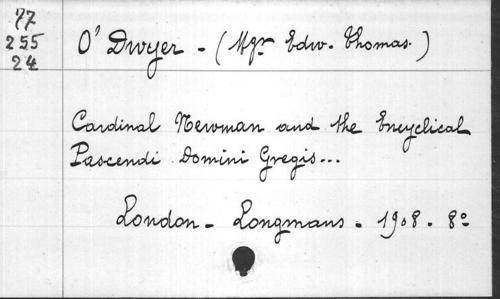 77
255
24
O' Dwyer - (Mgr Edw. Thomas.)
Cardinal Newman and the Encyclical
Pascendi Domini Gregis...
London - Longmans - 1908. 8º